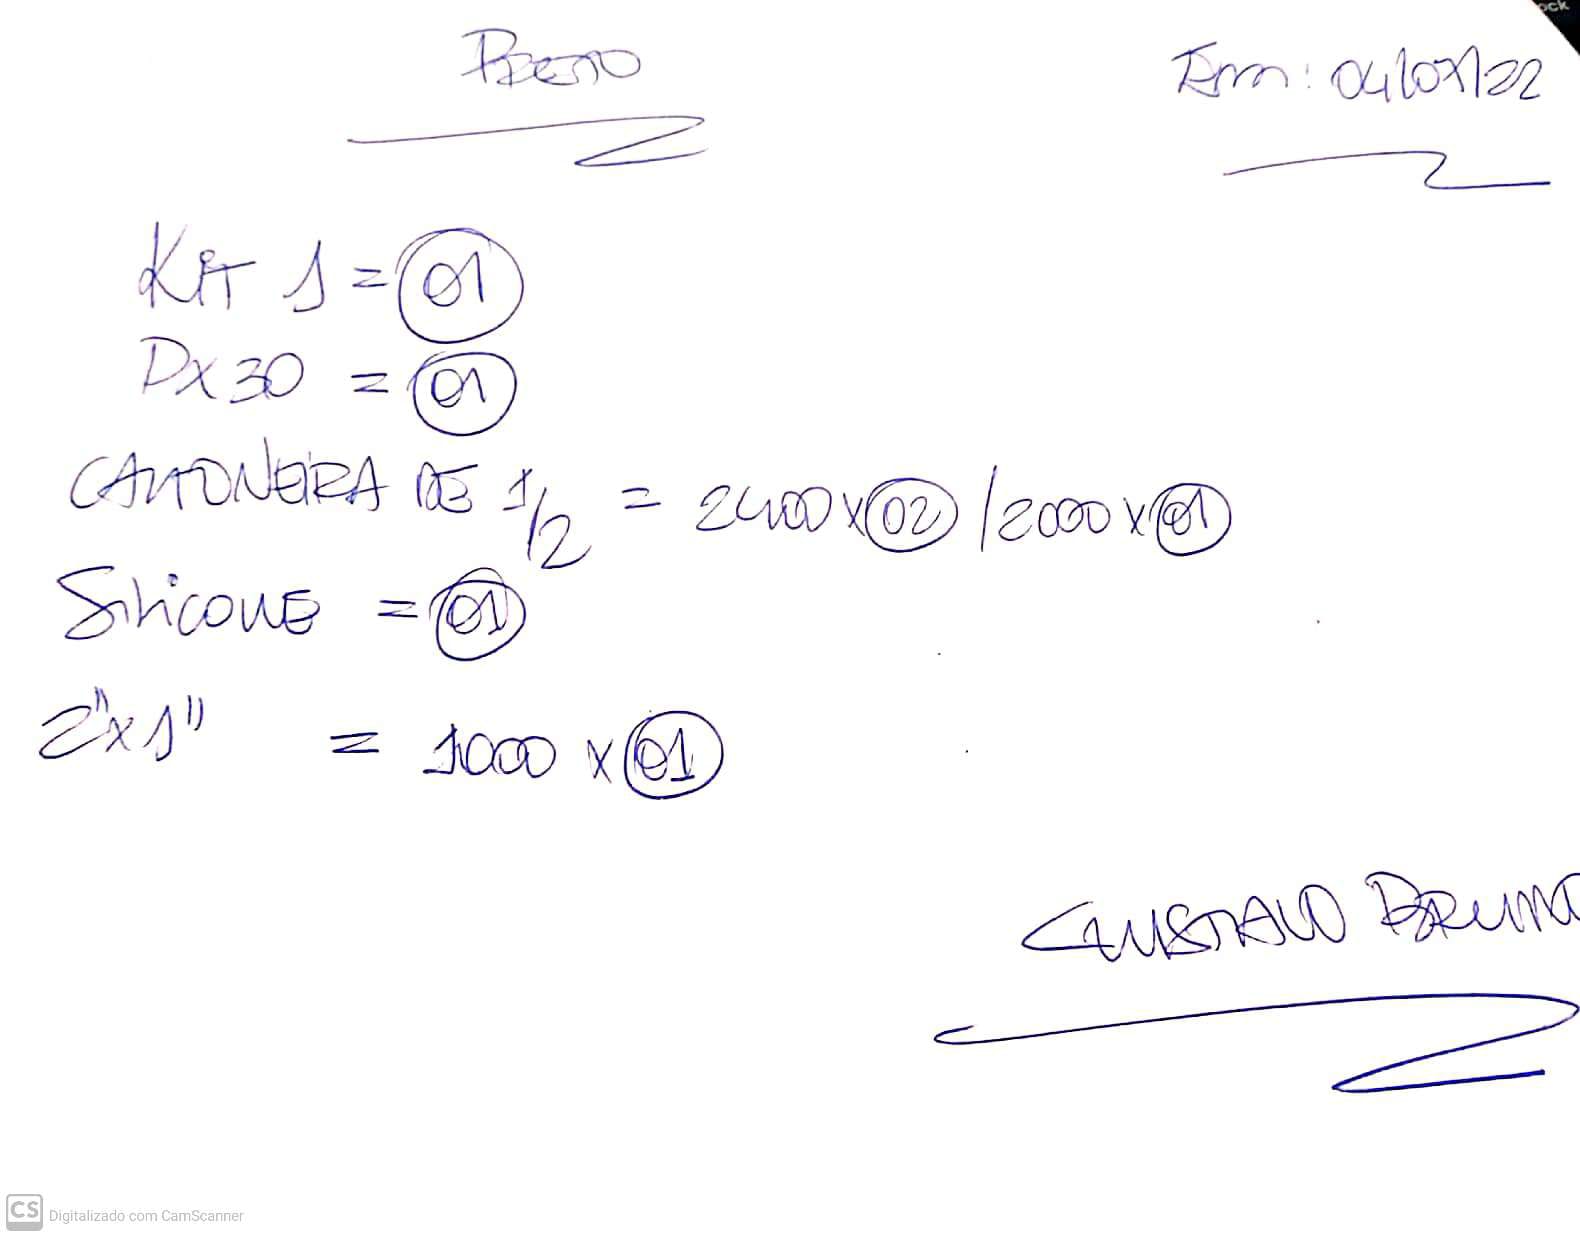 PRETO
Em: 04/07/22
KIT 1 = 01
DX30 = 01
CANTONEIRA DE 1/2 = 2400 x 02 / 2000 x 01
SILICONE = 01
2" x 1" = 1000 x 01
GUSTAVO BRUNO
CS Digitalizado com CamScanner